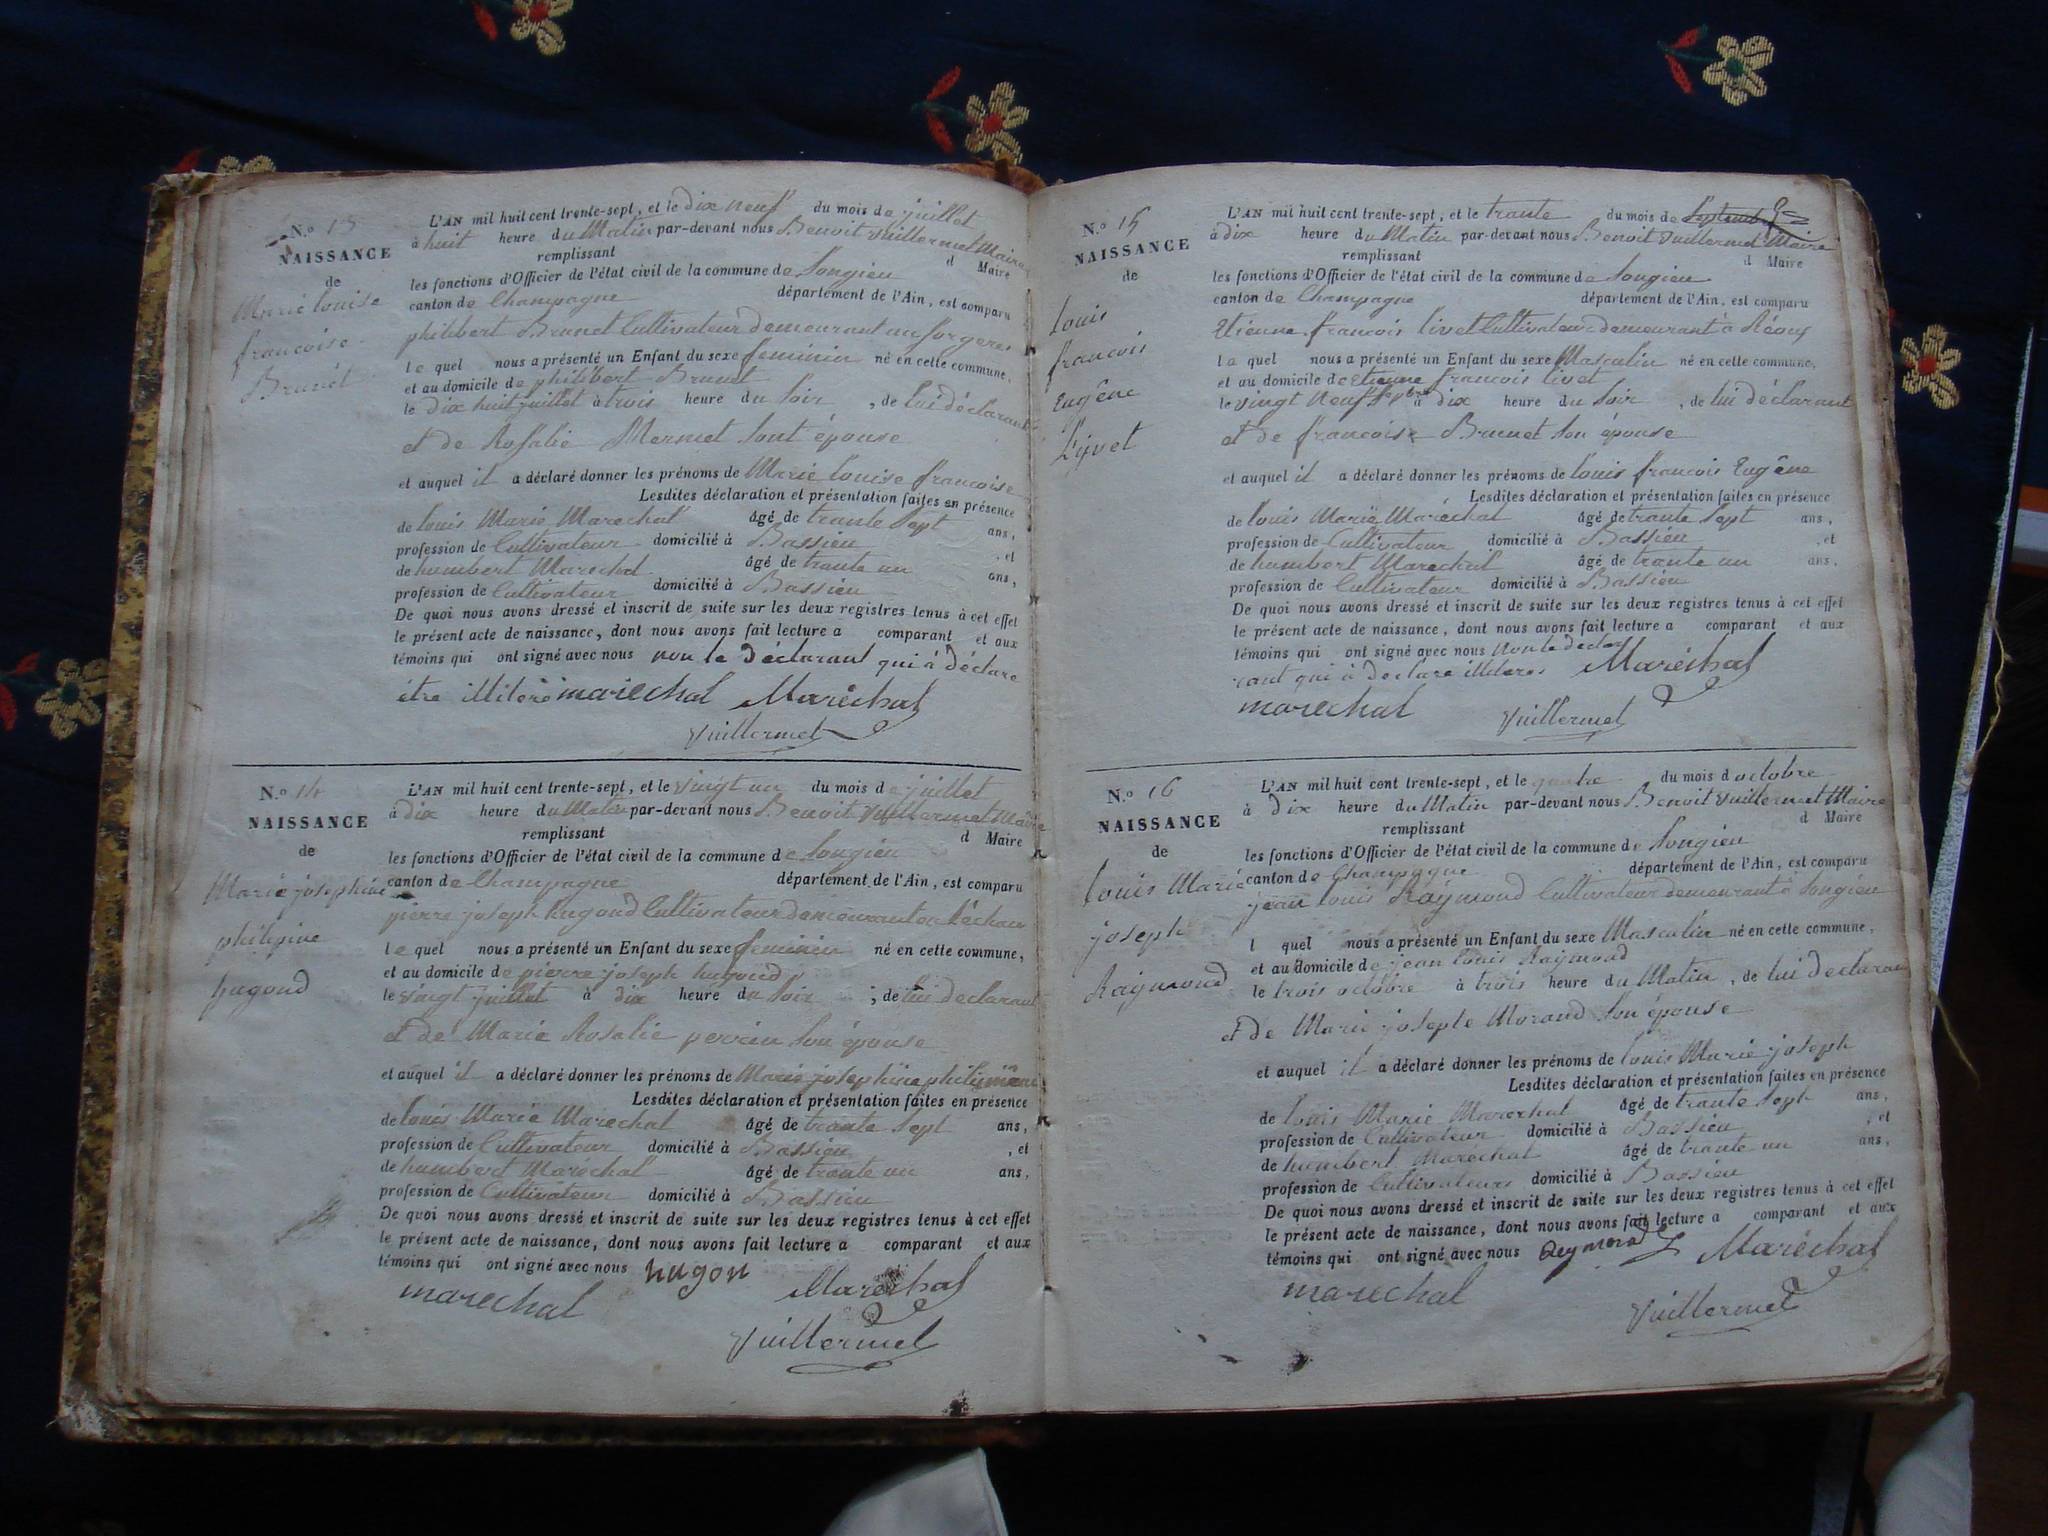 N.o 13
NAISSANCE
de
Marie louise
francoise
Brunet
L'AN mil huit cent trente-sept, et le dix neuf du mois de juillet
à huit heure du Matin par-devant nous Benoit Vuillermet Maire
remplissant d Maire
les fonctions d'Officier de l'état civil de la commune de Songieu
canton de Champagne département de l'Ain, est comparu
philibert Brunet Cultivateur demeurant au forgeres
le quel nous a présenté un Enfant du sexe feminin né en cette commune,
et au domicile de philibert Brunet
le Dix huit juillet à trois heure du Soir, de lui déclarant
et de Rosalie Mermet Sont épouse
et auquel il a déclaré donner les prénoms de Marie louise francoise
Lesdites déclaration et présentation faites en présence
de louis Marie Marechal âgé de trante Sept ans,
profession de Cultivateur domicilié à Bassieu, et
de humbert Marechal âgé de trante un ans,
profession de Cultivateur domicilié à Bassieu
De quoi nous avons dressé et inscrit de suite sur les deux registres tenus à cet effet
le présent acte de naissance, dont nous avons fait lecture a comparant et aux
témoins qui ont signé avec nous non le Déclarant qui à déclare
être illiteré marechal Maréchal
Vuillermet
N.o 14
NAISSANCE
de
Marie josephine
philipine
hugond
L'AN mil huit cent trente-sept, et le Vingt un du mois de juillet
à Dix heure du Matin par-devant nous Benoit Vuillermet Maire
remplissant d Maire
les fonctions d'Officier de l'état civil de la commune de Songieu
canton de Champagne département de l'Ain, est comparu
pierre joseph hugond Cultivateur demeurant
le quel nous a présenté un Enfant du sexe feminin né en cette commune,
et au domicile de pierre joseph hugond
le Vingt juillet à dix heure du Soir; de lui declarant
et de Marie Rosalie perrin Son épouse
et auquel il a déclaré donner les prénoms de Marie josephine
Lesdites déclaration et présentation faites en présence
de louis Marie Marechal âgé de trante Sept ans,
profession de Cultivateur domicilié à Bassieu, et
de humbert Marechal âgé de trante un ans,
profession de Cultivateur domicilié à Bassieu
De quoi nous avons dressé et inscrit de suite sur les deux registres tenus à cet effet
le présent acte de naissance, dont nous avons fait lecture a comparant et aux
témoins qui ont signé avec nous hugon Maréchal
marechal
Vuillermet
N.o 15
NAISSANCE
de
louis
francois
Eugêne
Livet
L'AN mil huit cent trente-sept, et le trante du mois de Septembre
à dix heure du Matin par-devant nous Benoit Vuillermet Maire
remplissant d Maire
les fonctions d'Officier de l'état civil de la commune de Songieu
canton de Champagne département de l'Ain, est comparu
Etienne francois livet Cultivateur demeurant à
le quel nous a présenté un Enfant du sexe Masculin né en cette commune,
et au domicile de Etienne francois livet
le Vingt Neuf Sepbre à dix heure du Soir, de lui déclarant
et de francoise Brunet Son épouse
et auquel il a déclaré donner les prénoms de louis francois Eugêne
Lesdites déclaration et présentation faites en présence
de louis Marie Maréchal âgé de trante Sept ans,
profession de Cultivateur domicilié à Bassieu, et
de humbert Marechal âgé de trante un ans,
profession de Cultivateur domicilié à Bassieu
De quoi nous avons dressé et inscrit de suite sur les deux registres tenus à cet effet
le présent acte de naissance, dont nous avons fait lecture a comparant et aux
témoins qui ont signé avec nous Non le decla
rant qui à declare illiteres Maréchal
marechal Vuillermet
N.o 16
NAISSANCE
de
louis Marie
joseph
Raymond
L'AN mil huit cent trente-sept, et le quatre du mois d octobre
à Dix heure du Matin par-devant nous Benoit Vuillermet Maire
remplissant d Maire
les fonctions d'Officier de l'état civil de la commune de Songieu
canton de Champagne département de l'Ain, est comparu
jean louis Raymond Cultivateur demeurant à Songieu
l quel nous a présenté un Enfant du sexe Masculin né en cette commune,
et au domicile de jean louis Raymond
le trois octobre à trois heure du Matin, de lui declarant
et de Marie josepte Morand Son épouse
et auquel il a déclaré donner les prénoms de louis Marie joseph
Lesdites déclaration et présentation faites en présence
de louis Marie Marechal âgé de trante Sept ans,
profession de Cultivateur domicilié à Bassieu, et
de humbert Marechal âgé de trante un ans,
profession de Cultivateurs domicilié à Bassieu
De quoi nous avons dressé et inscrit de suite sur les deux registres tenus à cet effet
le présent acte de naissance, dont nous avons fait lecture a comparant et aux
témoins qui ont signé avec nous Reymond Maréchal
marechal
Vuillermet